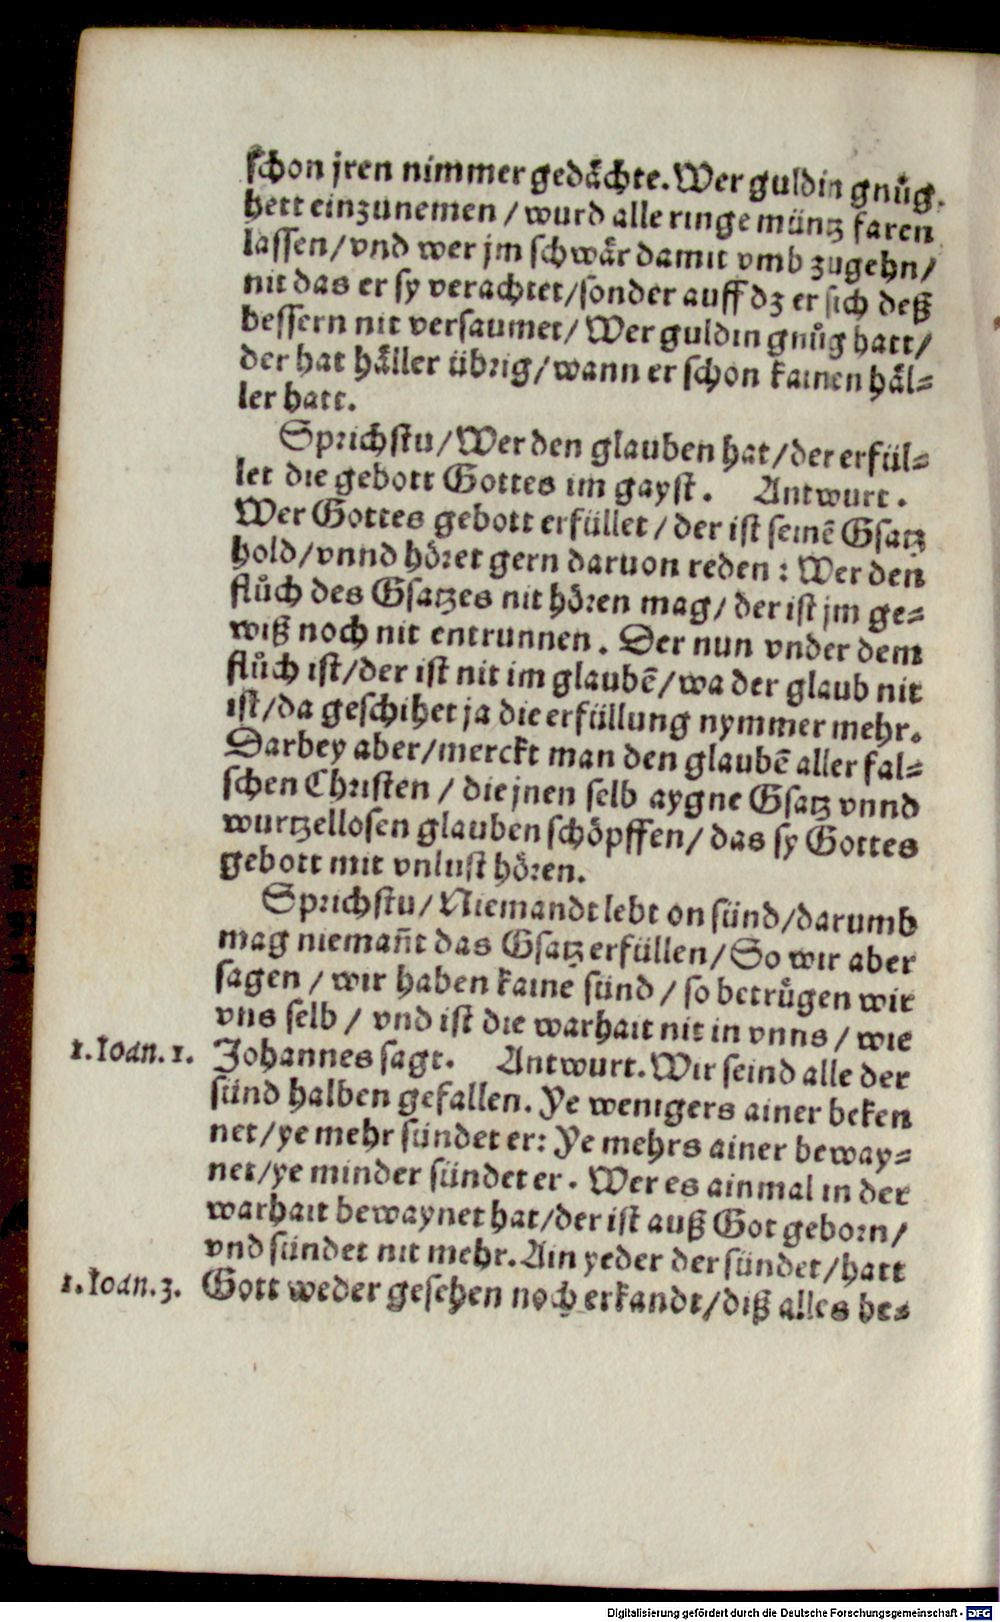 schon jren nimmer gedächte. Wer guldin gnůg
hett einzunemen / wurd alle ringe müntz faren
lassen / vnd wer jm schwär damit vmb zugehn /
nit das er sy verachtet / sonder auff dz er sich deß
bessern nit versaumet / Wer guldin gnůg hatt /
der hat häller übrig / wann er schon kainen häl=
ler hatt.
Sprichstu / Wer den glauben hat / der erfül=
let die gebott Gottes im gayst. Antwurt.
Wer Gottes gebott erfüllet / der ist seinē Gsatz
hold / vnnd höret gern daruon reden : Wer den
flůch des Gsatzes nit hören mag / der ist jm ge=
wiß noch nit entrunnen. Der nun vnder dem
flůch ist / der ist nit im glaubē / wa der glaub nit
ist / da geschihet ja die erfüllung nymmer mehr.
Darbey aber / merckt man den glaubē aller fal=
schen Christen / die jnen selb aygne Gsatz vnnd
wurtzellosen glauben schöpffen / das sy Gottes
gebott mit vnlust hören.
Sprichstu / Niemandt lebt on sünd / darumb
mag niemañt das Gsatz erfüllen / So wir aber
sagen / wir haben kaine sünd / so betrůgen wir
vns selb / vnd ist die warhait nit in vnns / wie
1. Ioan. 1. Johannes sagt. Antwurt. Wir seind alle der
sünd halben gefallen. Ye wenigers ainer beken
net / ye mehr sündet er: Ye mehrs ainer beway=
net / ye minder sündet er. Wer es ainmal in der
warhait bewaynet hat / der ist auß Got geborn /
vnd sündet nit mehr. Ain yeder der sündet / hatt
1. Ioan. 3. Gott weder gesehen noch erkandt / diß alles be=
Digitalisierung gefördert durch die Deutsche Forschungsgemeinschaft - DFG